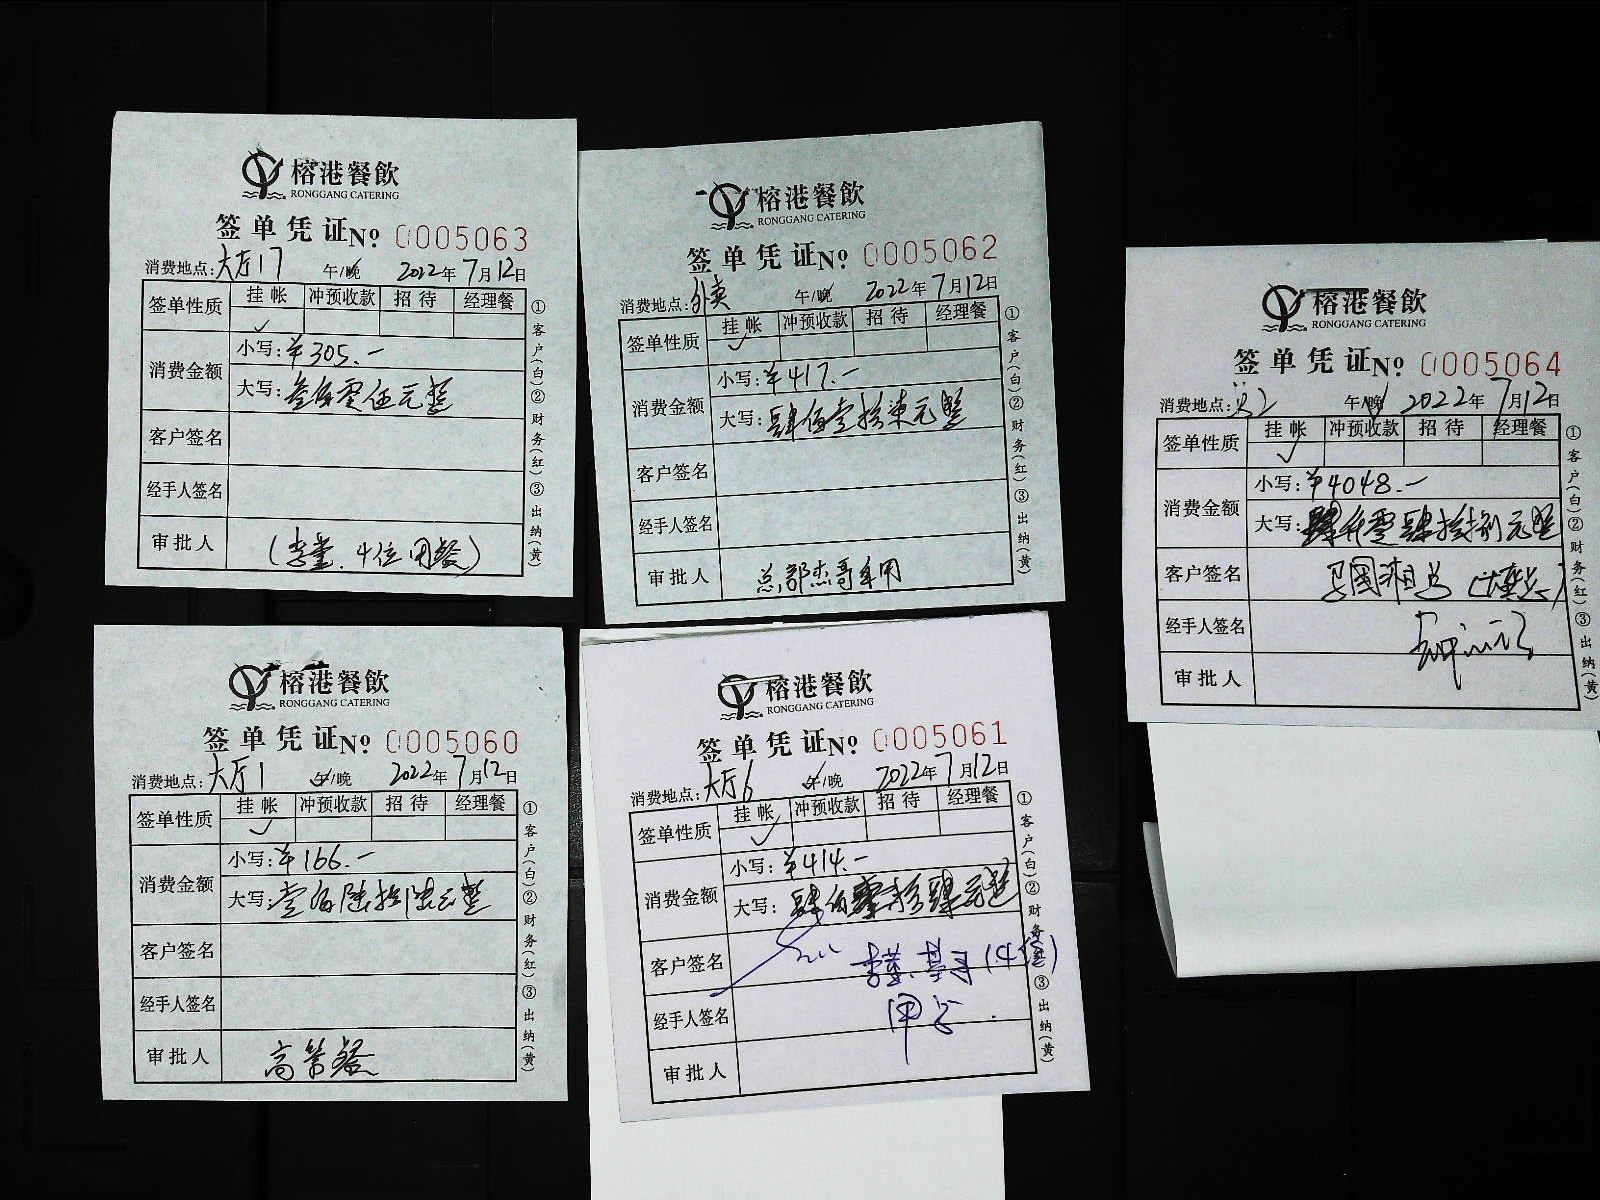 榕港餐飲
RONGGANG CATERING
签单凭证 No 0005063
消费地点: 大厅17 午/晚 2022年7月12日
签单性质 挂帐 冲预收款 招待 经理餐
✓
消费金额 小写: ¥305.-
大写: 叁佰零伍元整
客户签名
经手人签名
审批人 (李董.4位用餐)
①客户(白)②财务(红)③出纳(黄)
榕港餐飲
RONGGANG CATERING
签单凭证 No 0005062
消费地点: 外卖 午/晚 2022年7月12日
签单性质 挂帐 冲预收款 招待 经理餐
✓
消费金额 小写: ¥417.-
大写: 肆佰壹拾柒元整
客户签名
经手人签名
审批人 总部杰哥车用
①客户(白)②财务(红)③出纳(黄)
榕港餐飲
RONGGANG CATERING
签单凭证 No 0005064
消费地点: 午/晚 2022年7月12日
签单性质 挂帐 冲预收款 招待 经理餐
✓
消费金额 小写: ¥4048.-
大写: 肆仟零肆拾捌元整
客户签名
经手人签名
审批人
①客户(白)②财务(红)③出纳(黄)
榕港餐飲
RONGGANG CATERING
签单凭证 No 0005060
消费地点: 大厅1 午/晚 2022年7月12日
签单性质 挂帐 冲预收款 招待 经理餐
✓
消费金额 小写: ¥166.-
大写: 壹佰陆拾陆元整
客户签名
经手人签名
审批人 高管餐
①客户(白)②财务(红)③出纳(黄)
榕港餐飲
RONGGANG CATERING
签单凭证 No 0005061
消费地点: 大厅6 午/晚 2022年7月12日
签单性质 挂帐 冲预收款 招待 经理餐
✓
消费金额 小写: ¥414.-
大写: 肆佰壹拾肆元整
客户签名
经手人签名
审批人
①客户(白)②财务(红)③出纳(黄)